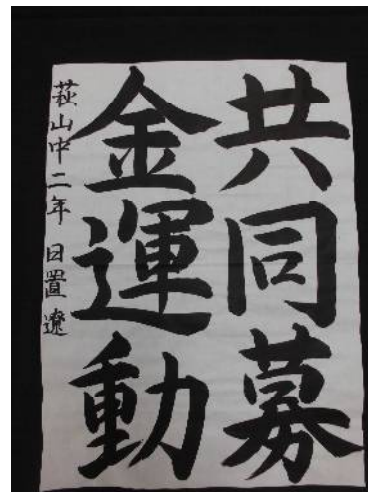 共同募
金運動
萩山中二年 日置遼